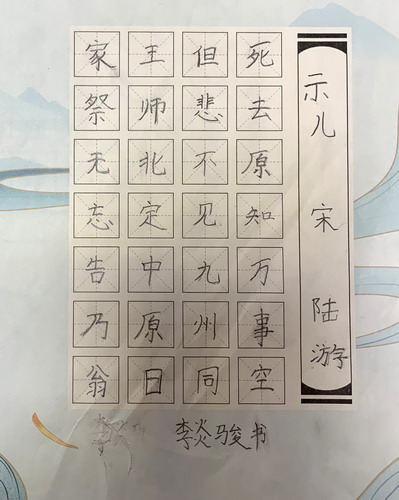 示儿 宋 陆游
死去原知万事空
但悲不见九州同
王师北定中原日
家祭无忘告乃翁
李炎骏书